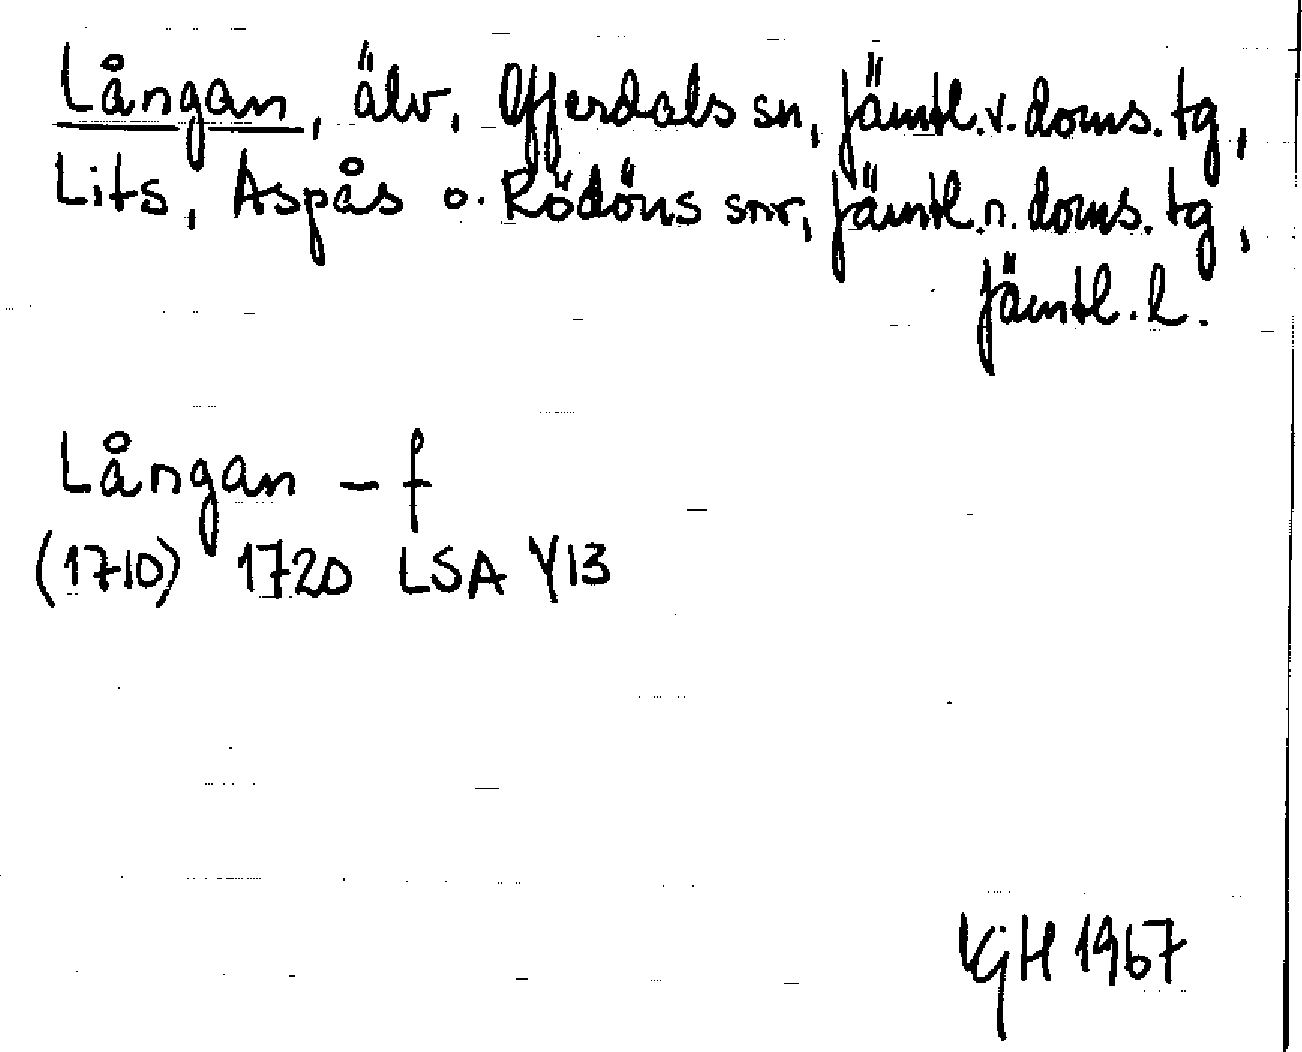 Långan, älv, Offerdals sn, Jämtl.v.doms.tg,
Lits, Aspås o. Rödöns snr, Jämtl.n.doms.tg,
Jämtl.l.
Långan – f
(1710) 1720 LSA Y13
KjH 1967